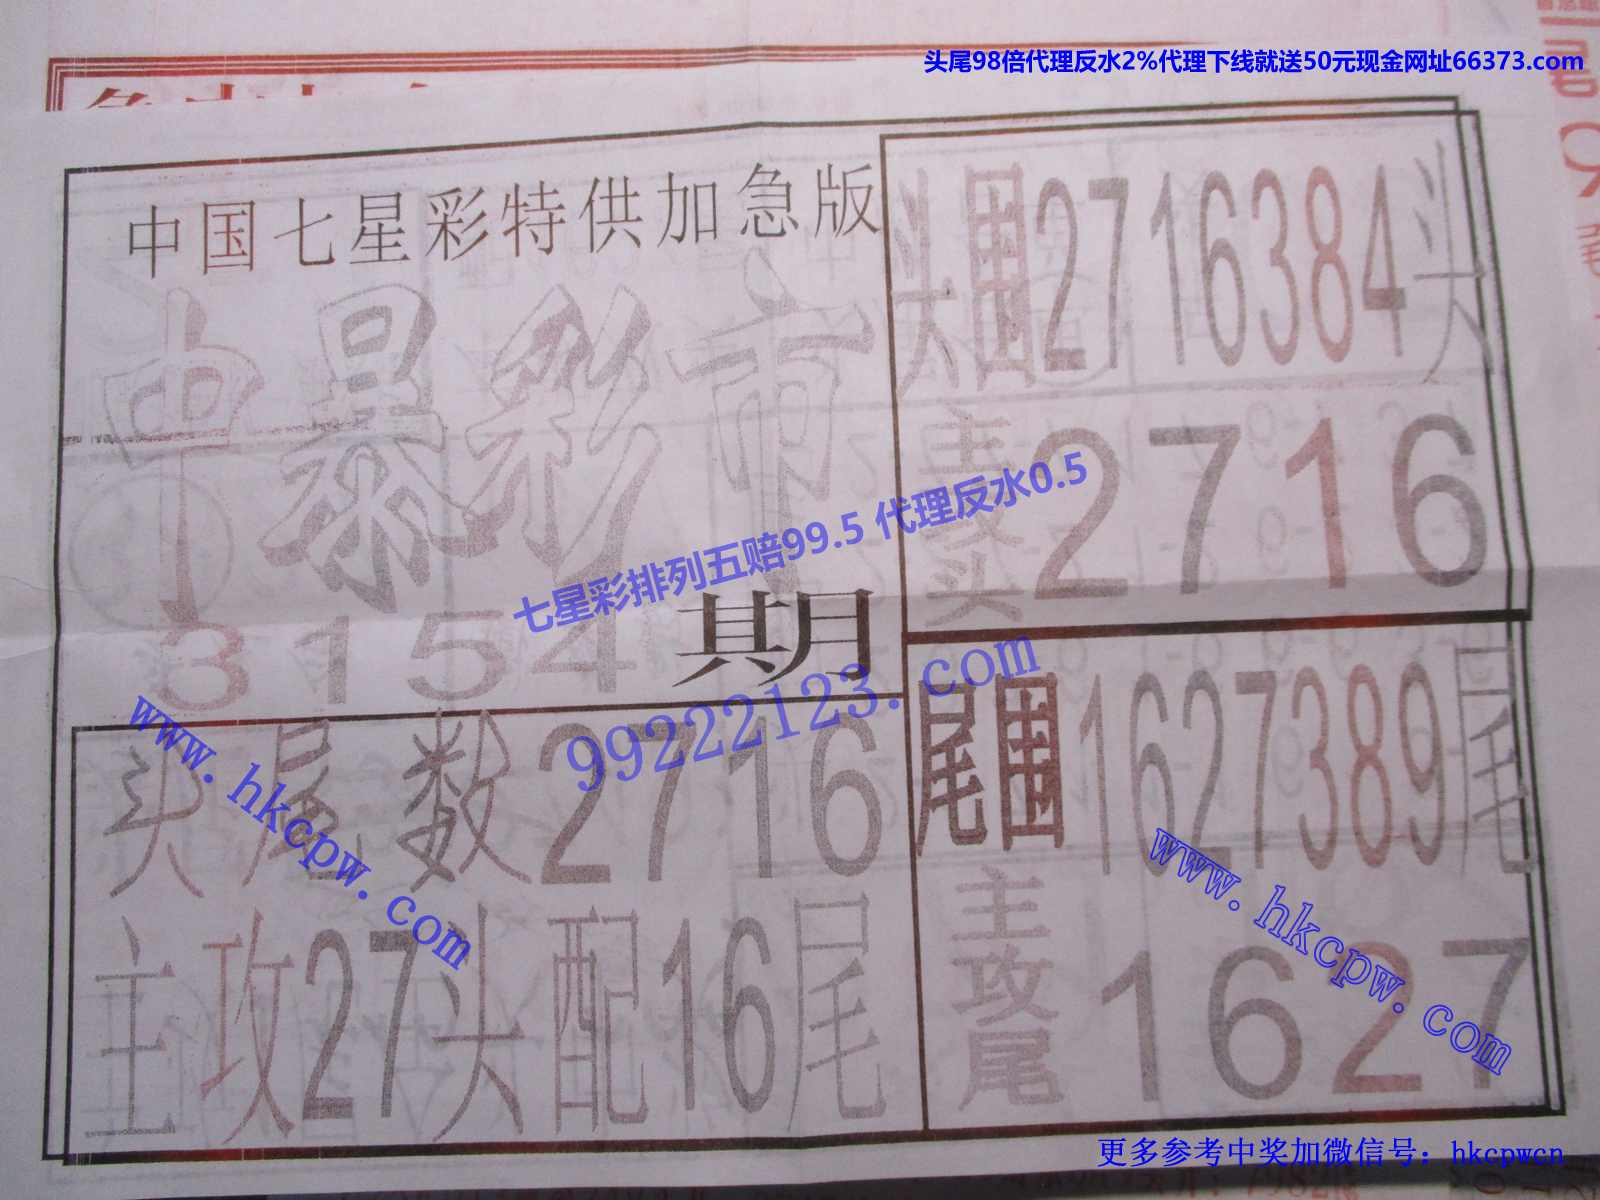 头尾98倍代理反水2%代理下线就送50元现金网址66373.com
中国七星彩特供加急版
中暴彩市
3154期
头尾数2716
主攻27头配16尾
头围2716384头
主攻头2716
尾围1627389尾
主攻尾1627
七星彩排列五赔99.5 代理反水0.5
99222123.com
www.hkcpw.com
www.hkcpw.com
更多参考中奖加微信号：hkcpwcn